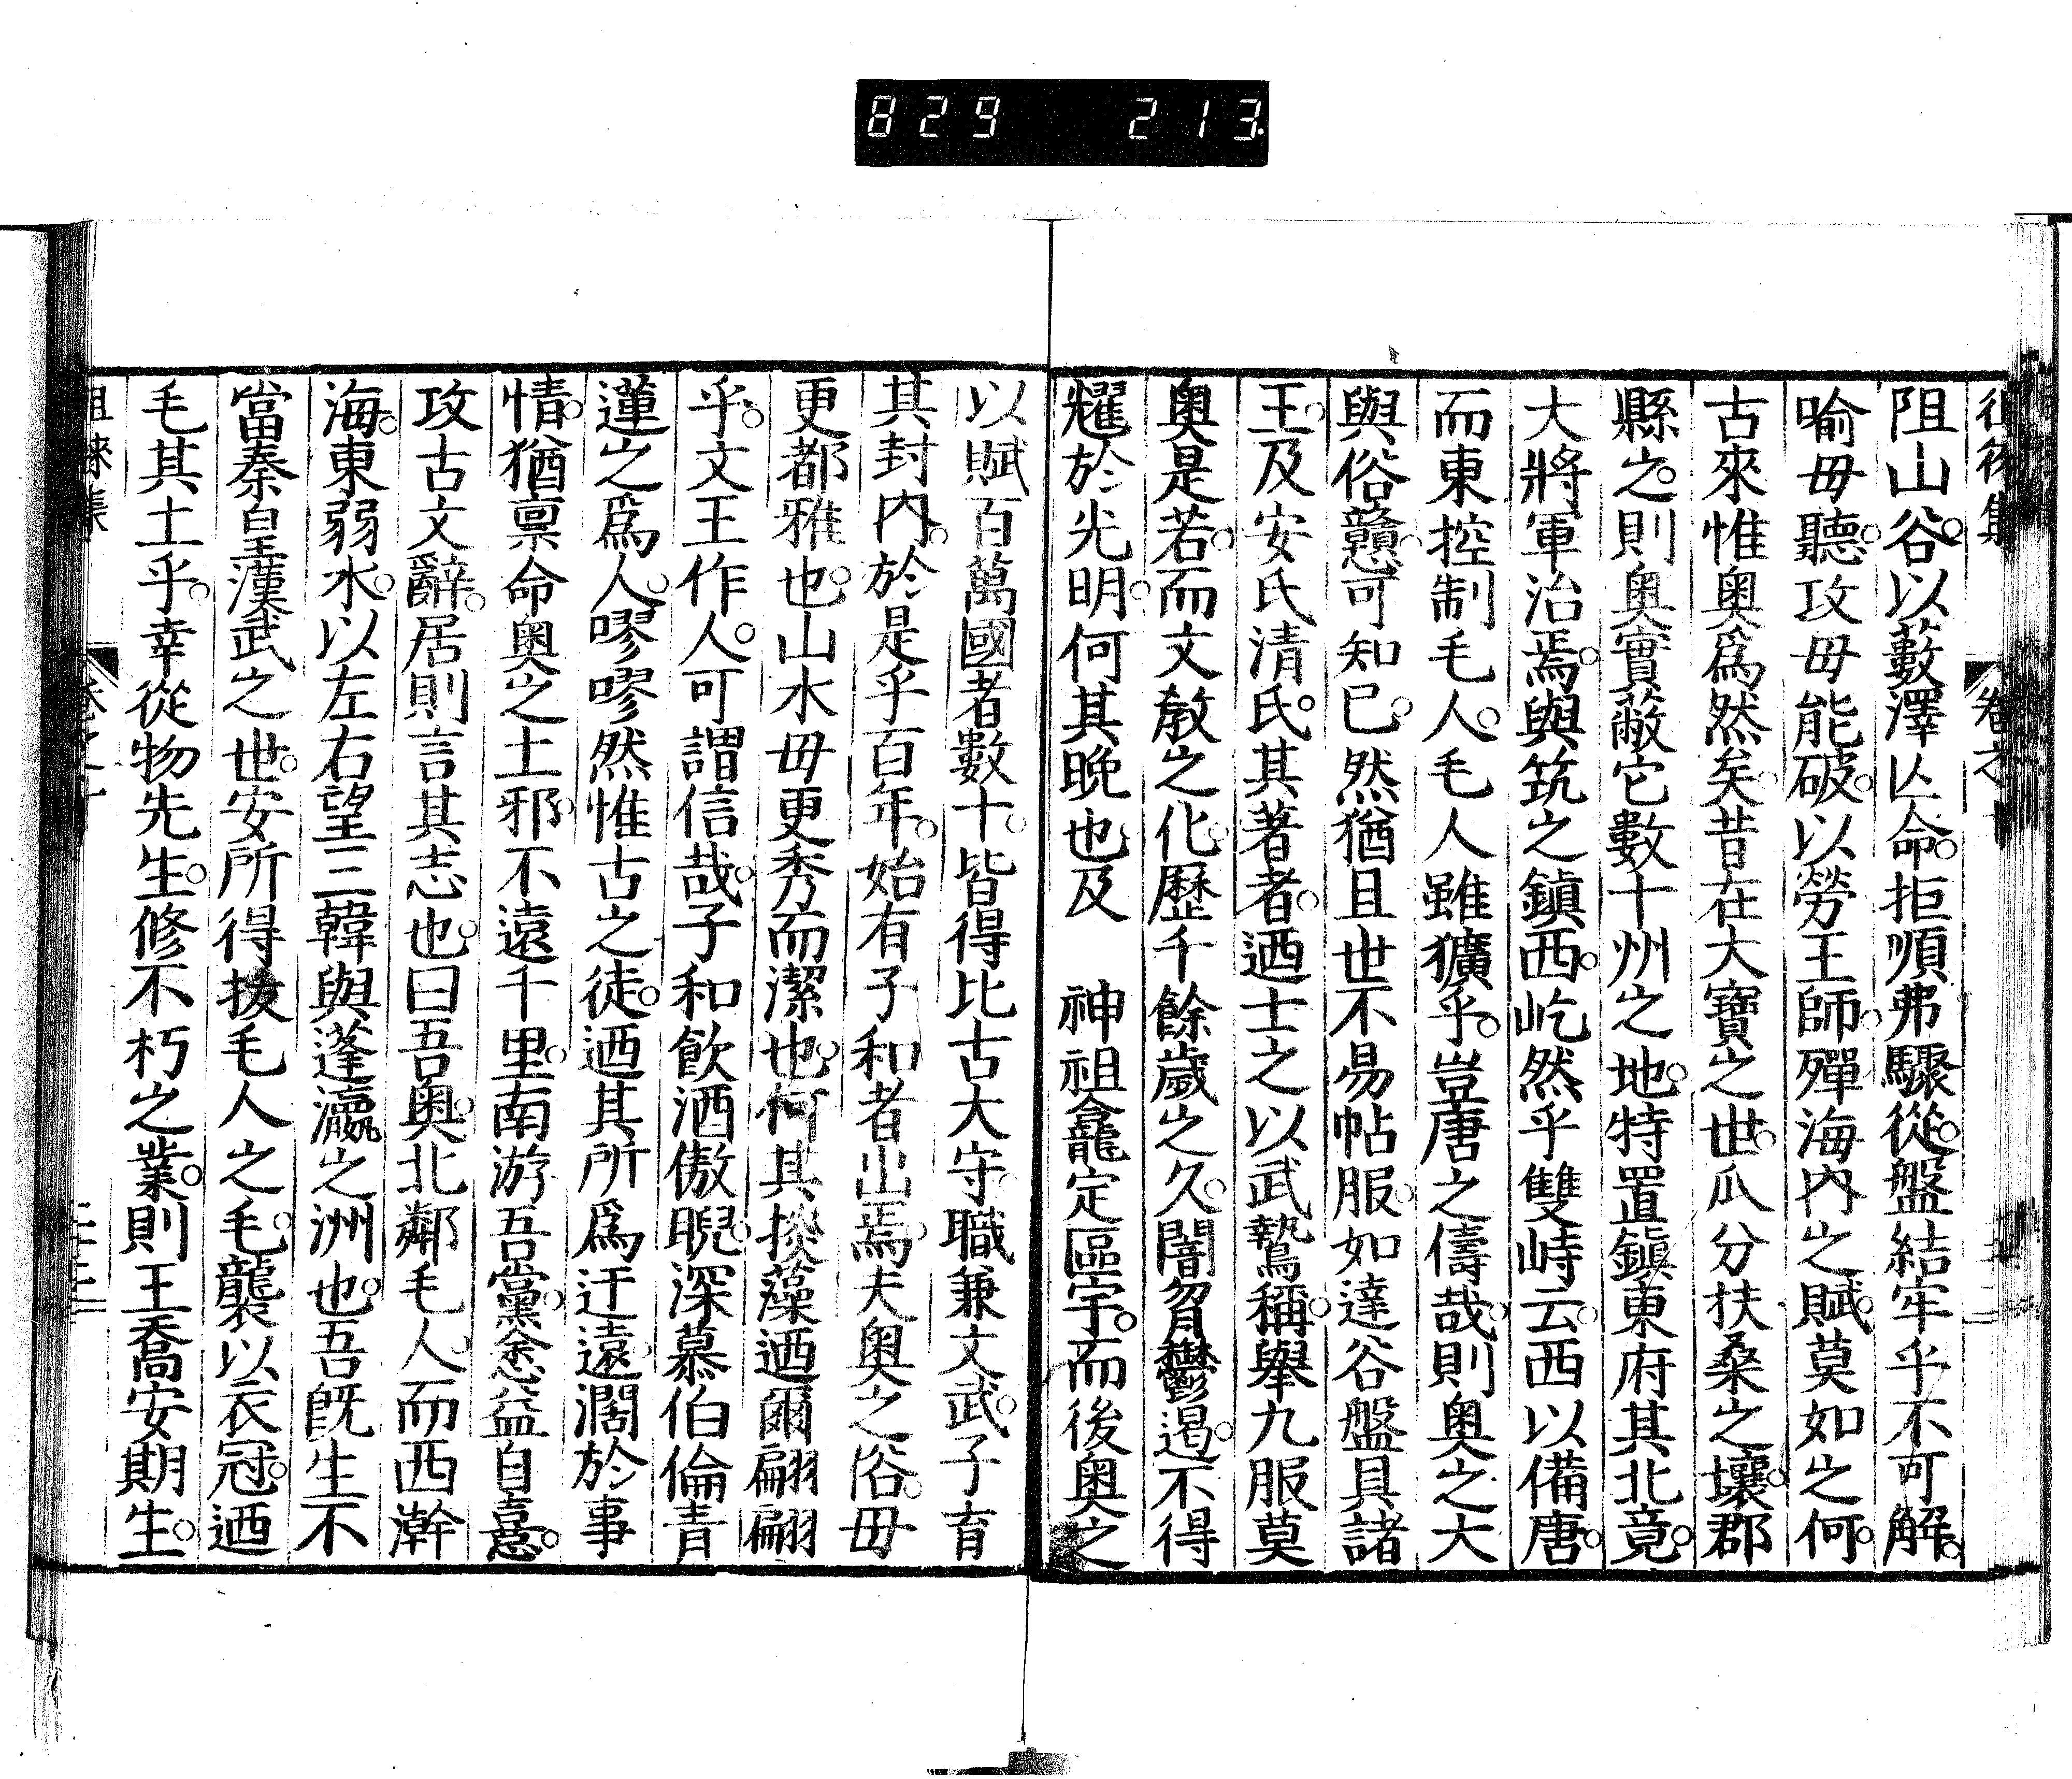 829 213
阻山谷。以藪澤亾命。拒順弗驟從。盤結牢乎不可解。
喻毋聽。攻毋能破。以勞王師。殫海內之賦。莫如之何。
古來惟奧爲然矣。昔在大寶之世。瓜分扶桑之壤。郡
縣之。則奧實蔽它數十州之地。特置鎭東府其北竟。
大將軍治焉。與筑之鎭西。屹然乎雙峙云。西以備唐。
而東控制毛人。毛人雖獷乎。豈唐之儔哉。則奧之大
與俗戇可知已。然猶且世不易帖服。如達谷盤具諸
王。及安氏清氏。其著者。迺士之以武鷙稱。舉九服莫
奧是若。而文敎之化。歷千餘歲之久。闇曶鬱遏。不得
燿於光明。何其晚也。及 神祖龕定區宇。而後奧之
以賦百萬國者數十。皆得比古大守。職兼文武。子育
其封內。於是乎百年。始有子和者出焉。夫奧之俗。毋
更都雅也。山水毋更秀而潔也。何其掞藻迺爾翩翩
乎。文王作人。可謂信哉。子和飲酒傲睨。深慕伯倫靑
蓮之爲人。嘐嘐然惟古之徒。迺其所爲迂遠濶於事
情。猶稟命奧之土邪。不遠千里。南游吾黨。悆益自憙。
攻古文辭。居則言其志也。曰吾奧。北鄰毛人。而西澣
海。東弱水。以左右望三韓與蓬瀛之洲也。吾旣生不
當秦皇漢武之世。安所得拔毛人之毛。襲以衣冠。迺
毛其土乎。幸從物先生。修不朽之業。則王喬安期生。
徂徠集 卷之十